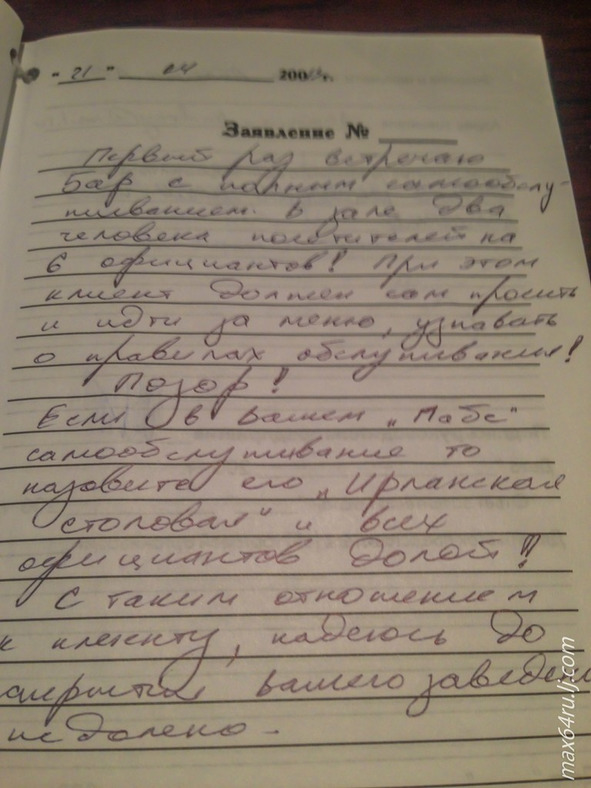 "21" 04 200 г.
Заявление №
Первый раз встречаю
Бар с полным самообслу-
живанием. В зале два
человека посетителей на
6 официантов! При этом
клиент должен сам просить
и идти за меню, узнавать
о правилах обслуживания!
Позор!
Если в вашем „Пабе"
самообслуживание то
назовите его „Ирланская
столовая" и всех
официантов долой!!
С таким отношением
к клиенту, надеюсь до
закрытия вашего заведен
не далеко.
max64ru.lj.com